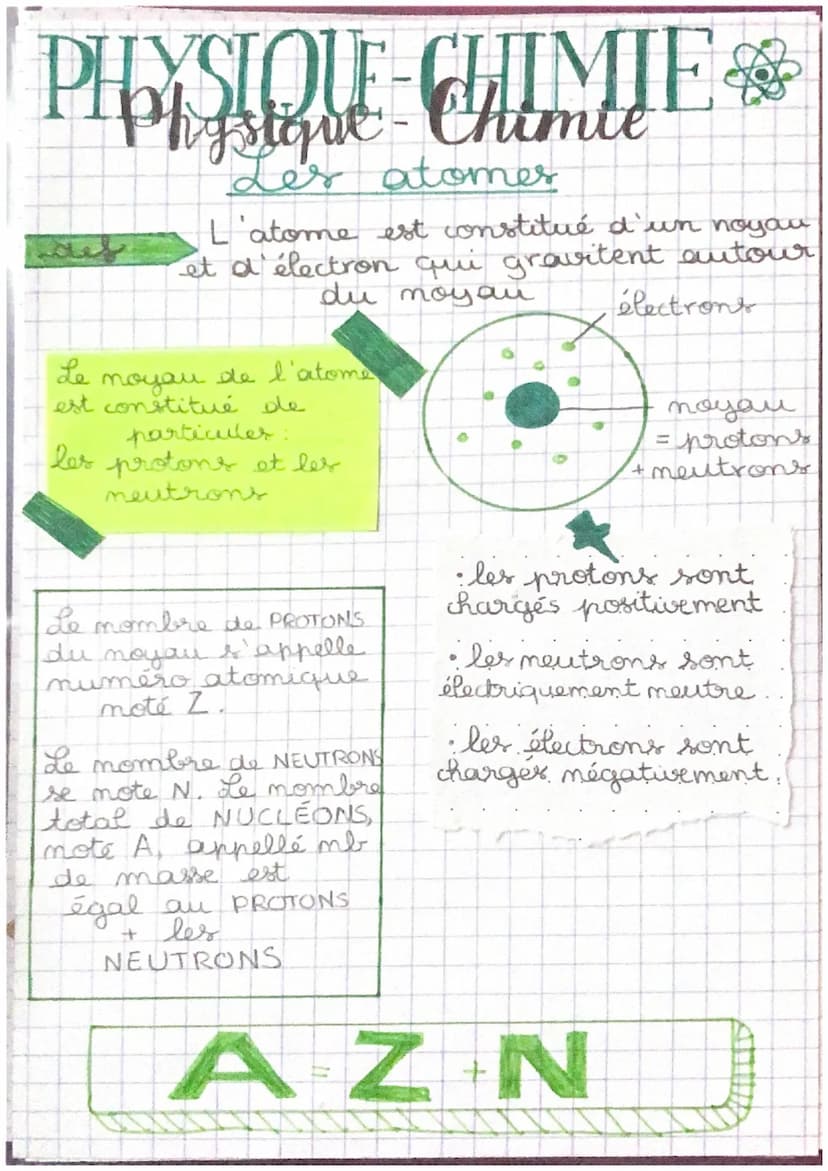 PHYSIQUE-CHIMIE
Physique-Chimie
Les atomes
def
L'atome est constitué d'un noyau
et d'électron qui gravitent autour
du noyau
électrons
Le noyau de l'atome
est constitué de
particules :
les protons et les
neutrons
noyau
= protons
+ neutrons
• les protons sont
chargés positivement
• les neutrons sont
électriquement neutre
• les électrons sont
chargés négativement.
Le nombre de PROTONS
du noyau s'appelle
numéro atomique
noté Z.
Le nombre de NEUTRONS
se note N. Le nombre
total de NUCLÉONS,
noté A, appellé nb
de masse est
égal au PROTONS
+ les
NEUTRONS
A = Z + N